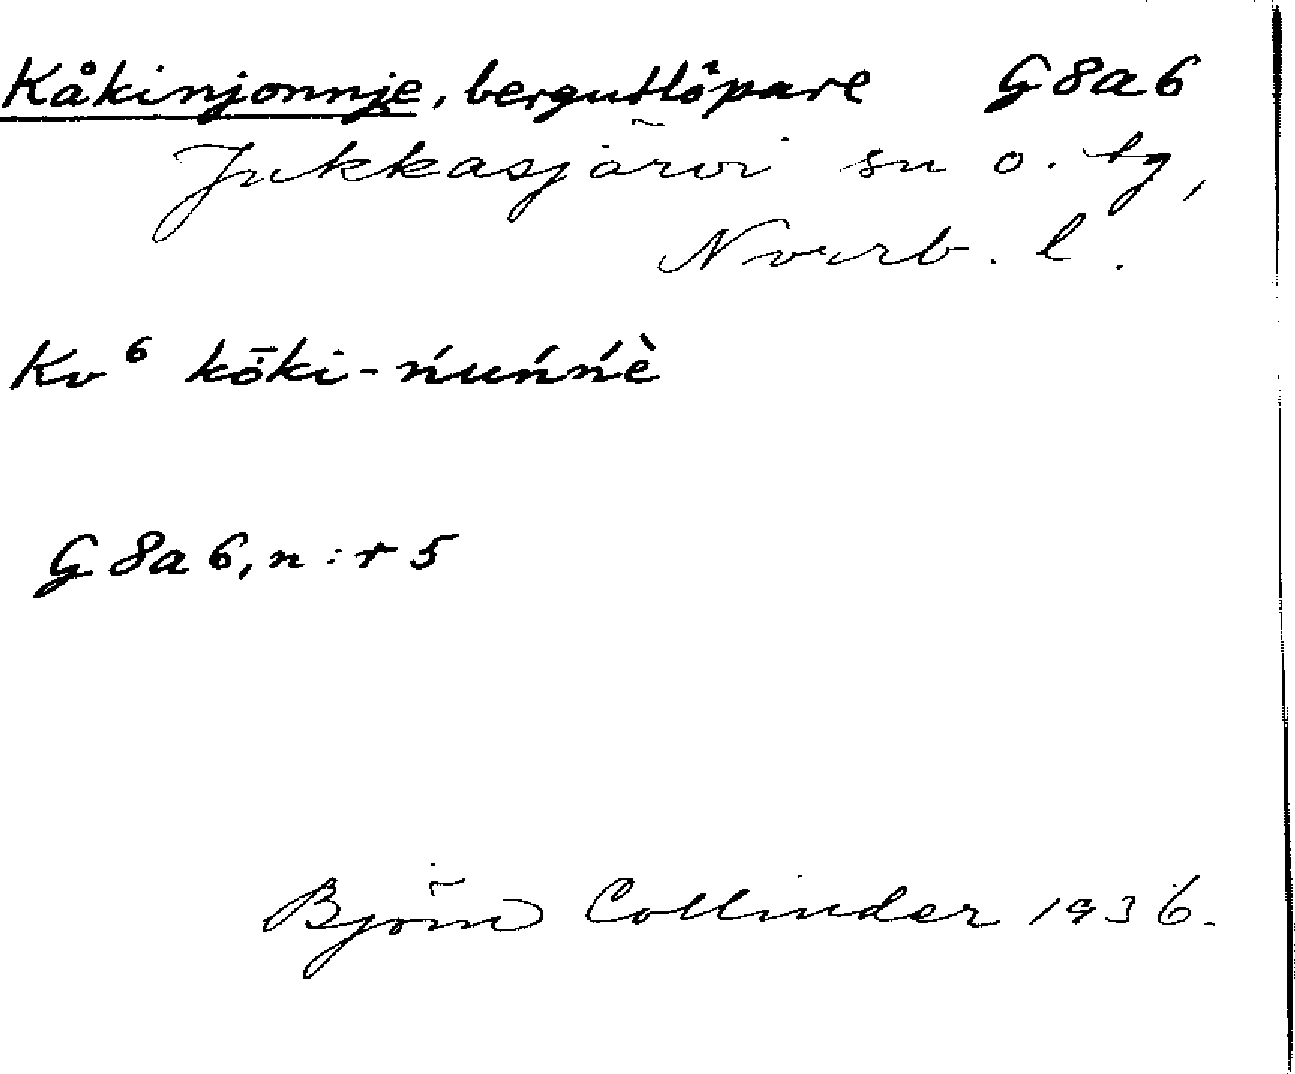 Kåkinjonnje, bergutlöpare G8a6
Jukkasjärvi sn o. tg,
Norrb. l.
Kv⁶ kō̬ki-ńuńńè
G8a6, n:r 5
Björn Collinder 1936.